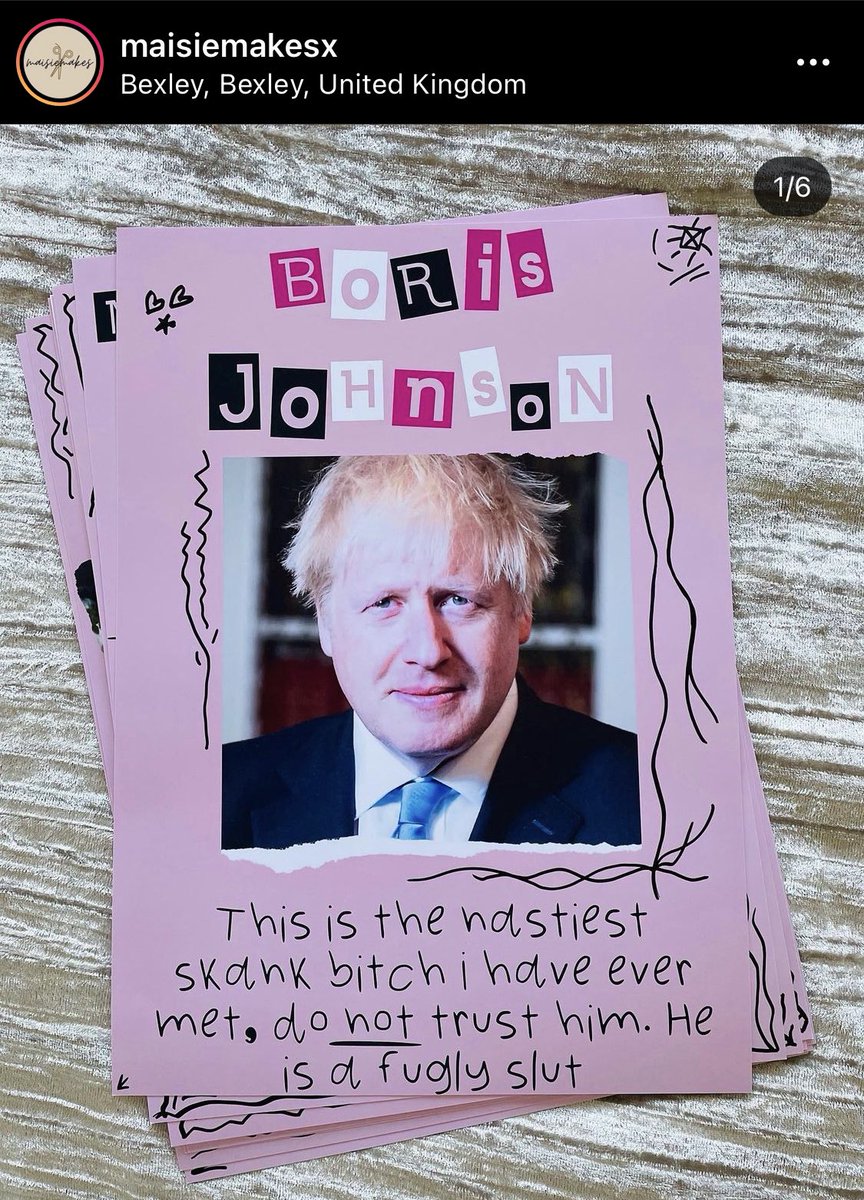 maisiemakes
maisiemakesx
Bexley, Bexley, United Kingdom
1/6
BORis
JOHnsoN
This is the nastiest
skank bitch i have ever
met, do not trust him. He
is a fugly slut